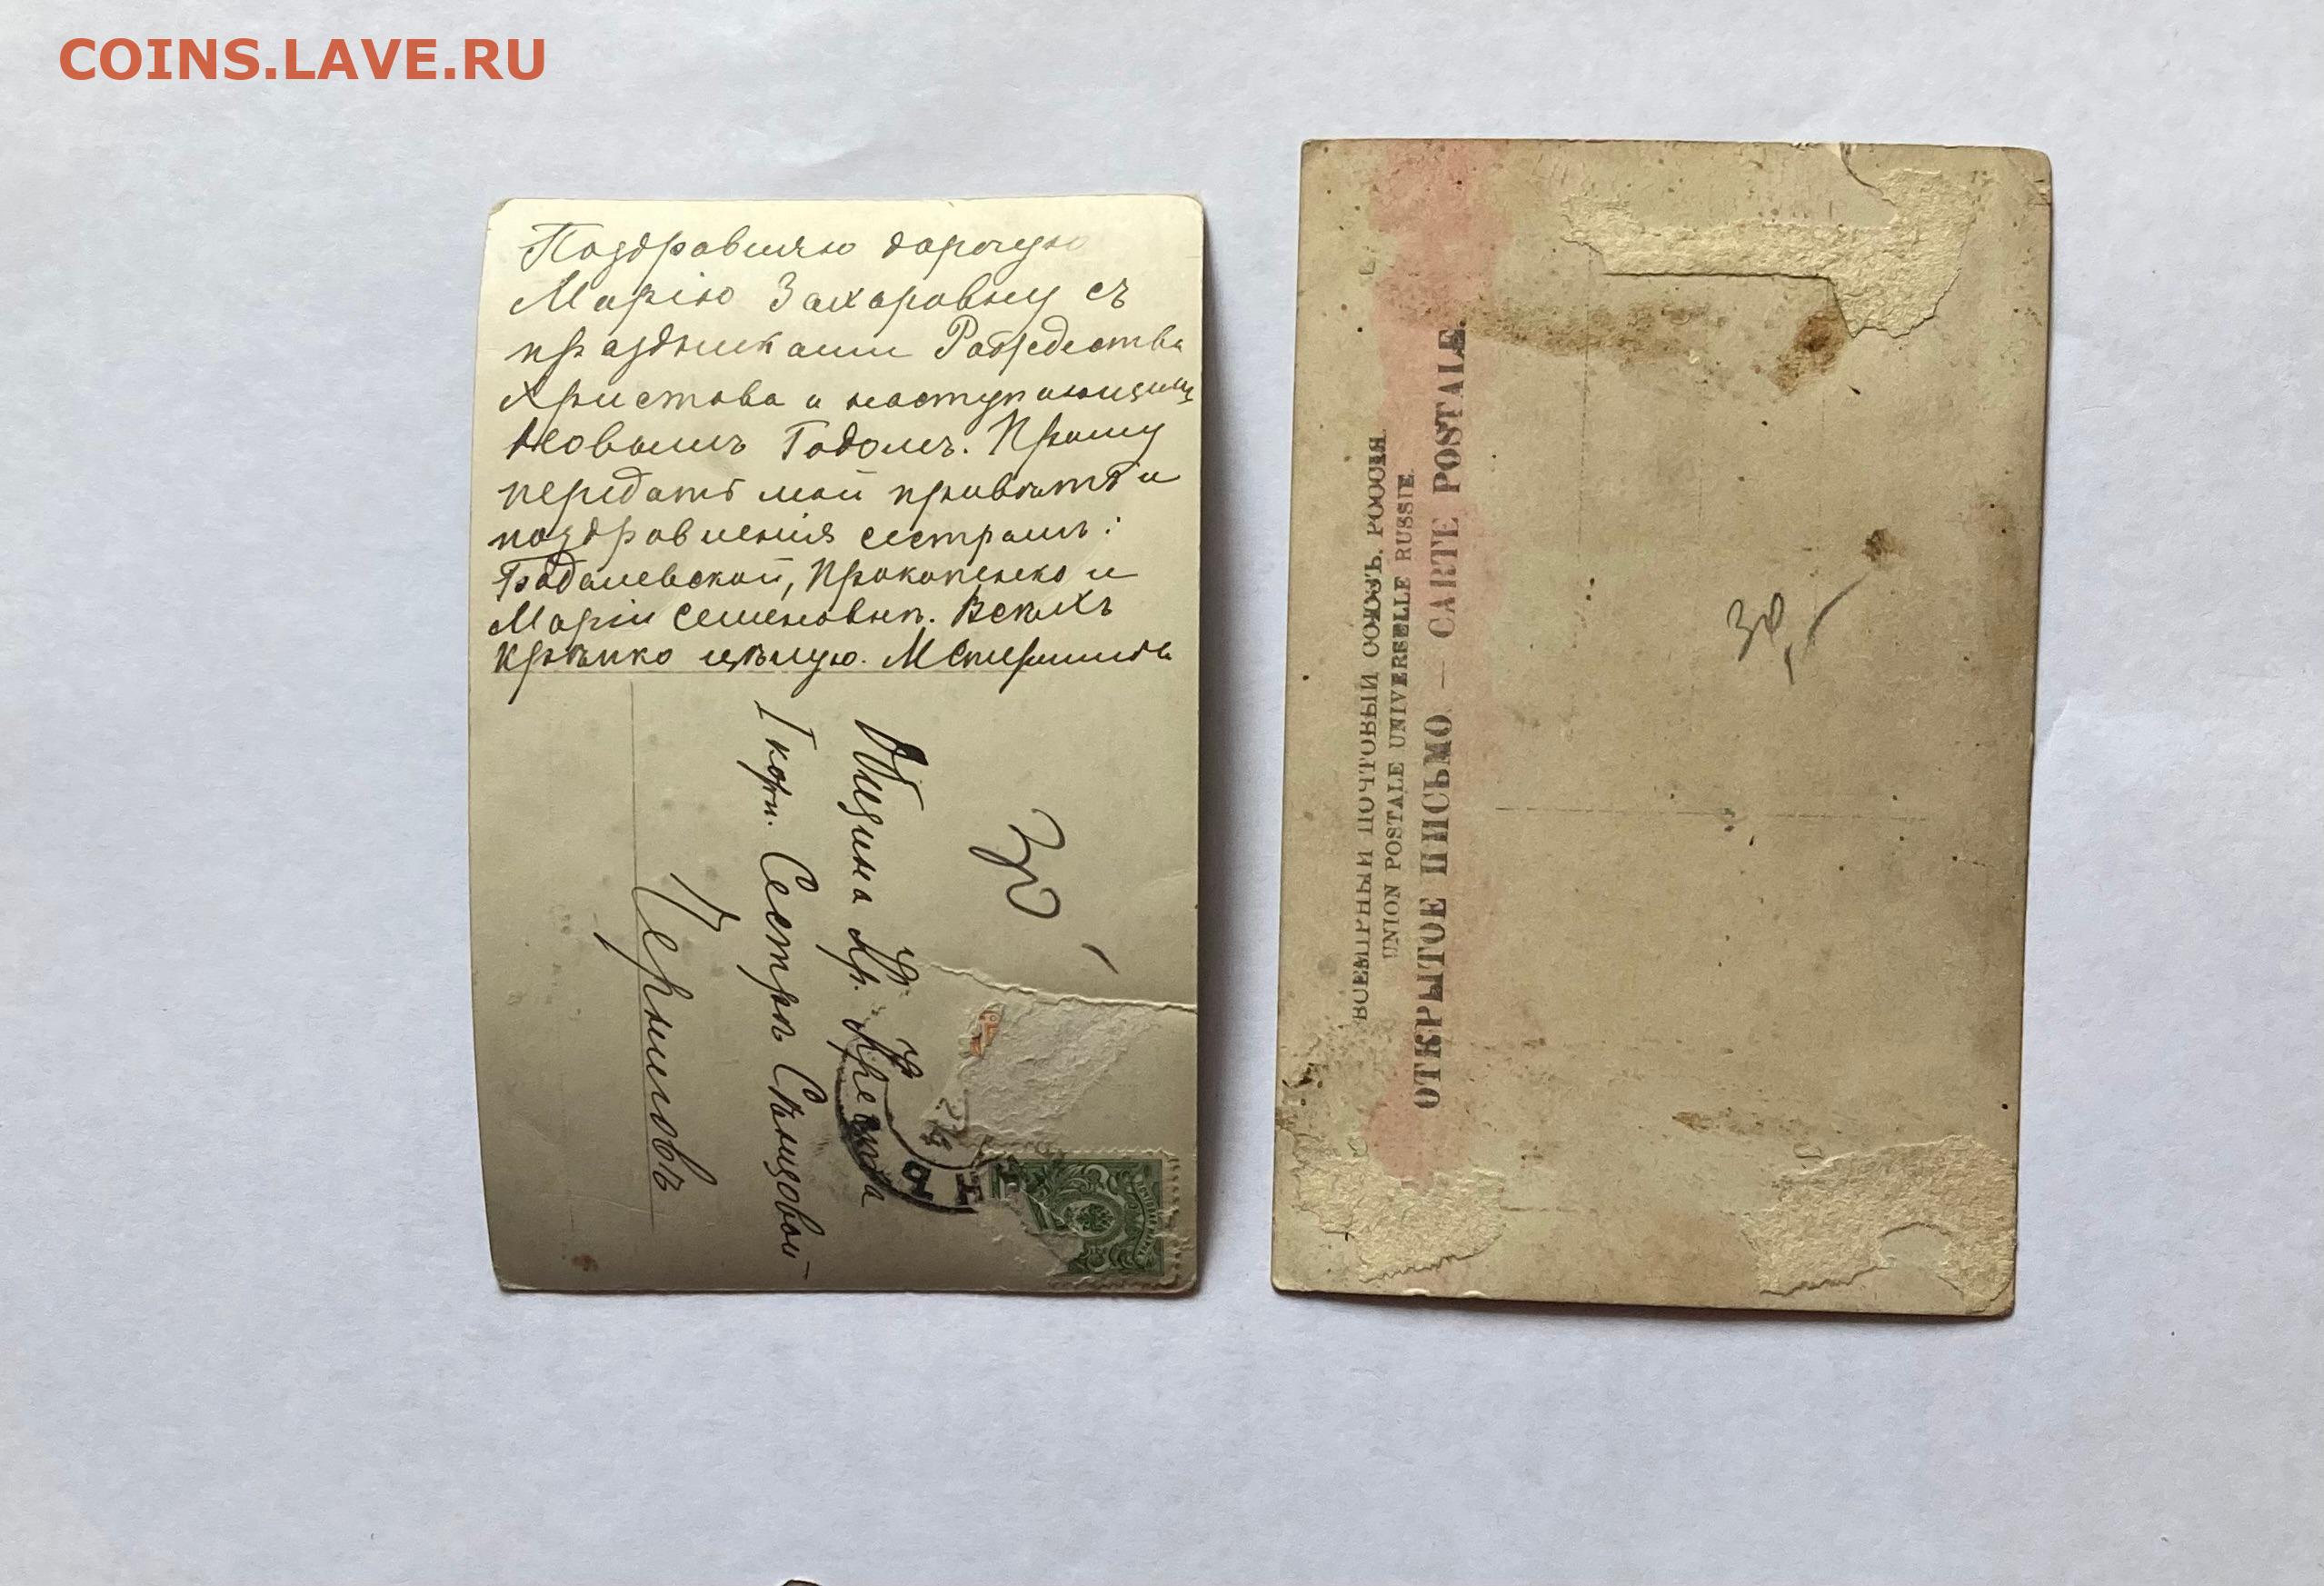 COINS.LAVE.RU
Поздравляю дорогую
Марію Захаровну съ
праздниками Рождества
Христова и наступающимъ
Новымъ Годомъ. Прошу
передать мой привѣтъ и
поздравленія сестрамъ:
Прокопенко и
Маріи Семеновнѣ. Всѣхъ
Крѣпко цѣлую.
Черниговъ
I
Сестрѣ
Община Кр. Креста
30
ВСЕМІРНЫЙ ПОЧТОВЫЙ СОЮЗЪ. РОССІЯ.
UNION POSTALE UNIVERSELLE RUSSIE.
ОТКРЫТОЕ ПИСЬМО — CARTE POSTALE.
30,-